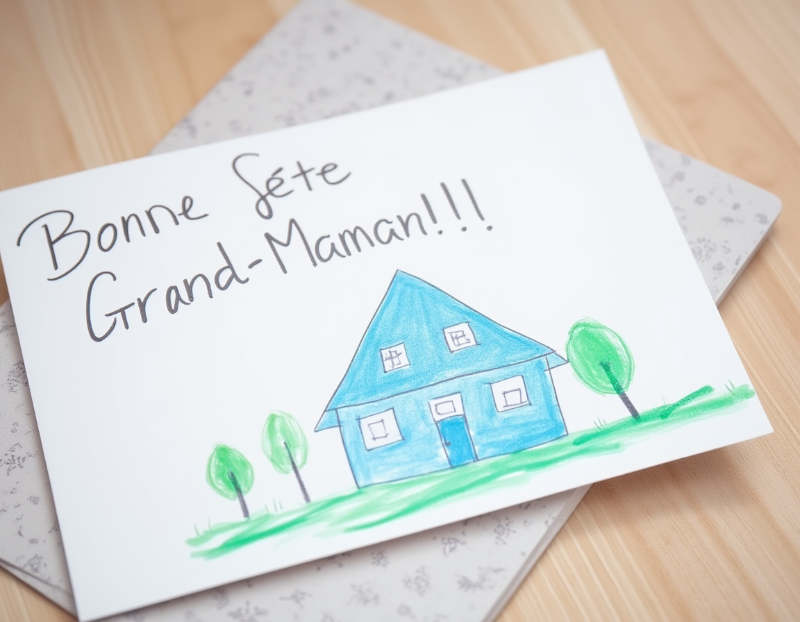 Bonne fête
Grand-Maman!!!